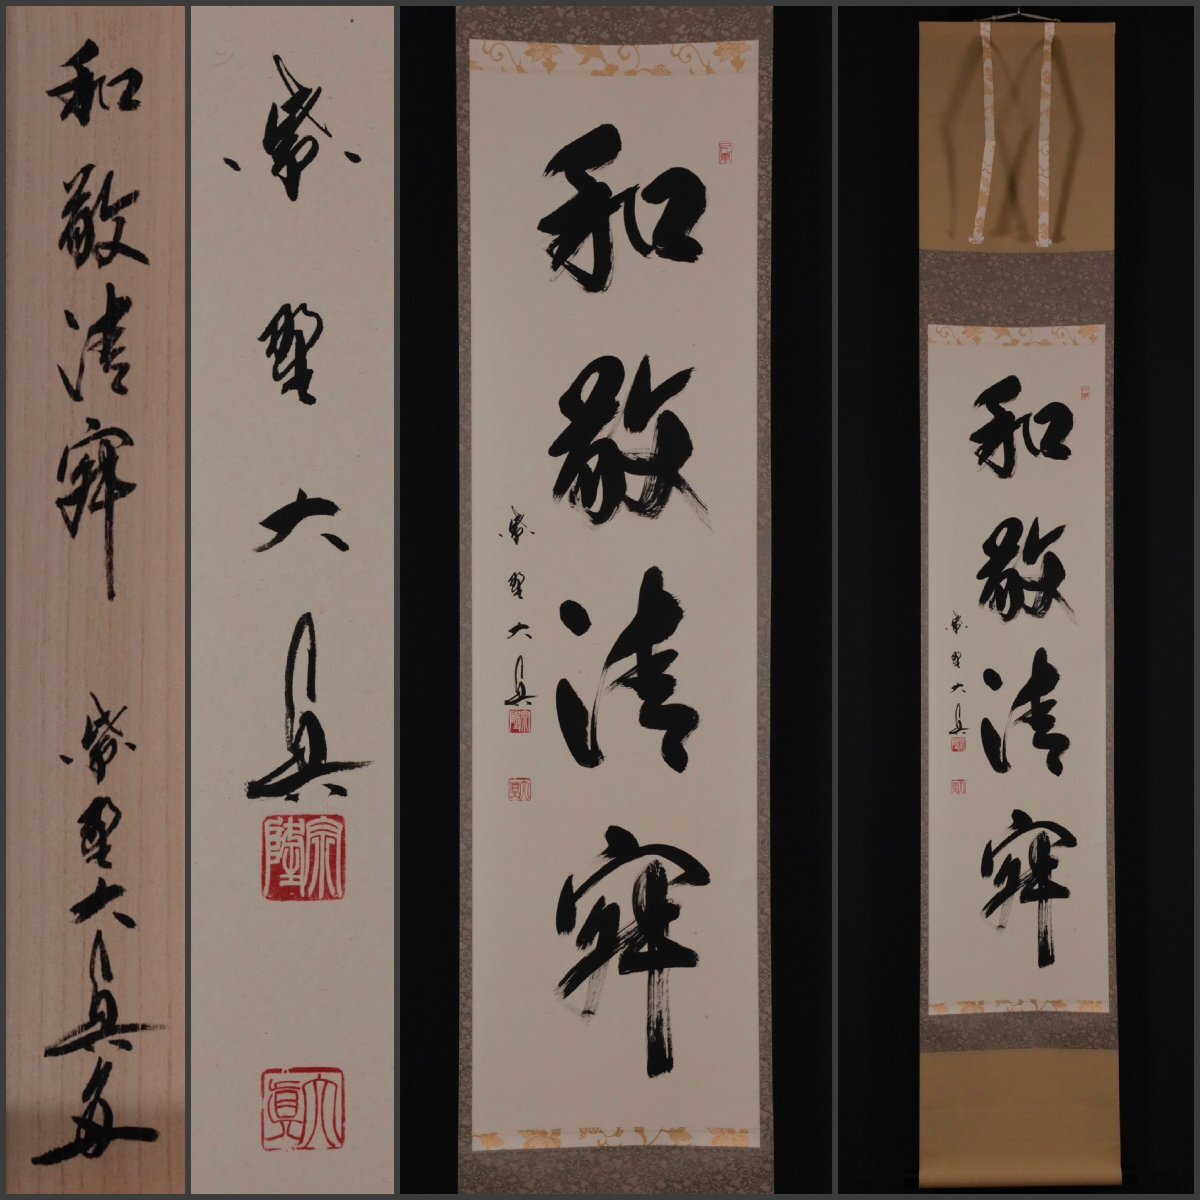 和敬清寂 紫野大真書
紫野大真
大眞
和敬清寂
紫野大真
大眞
和敬清寂
紫野大真